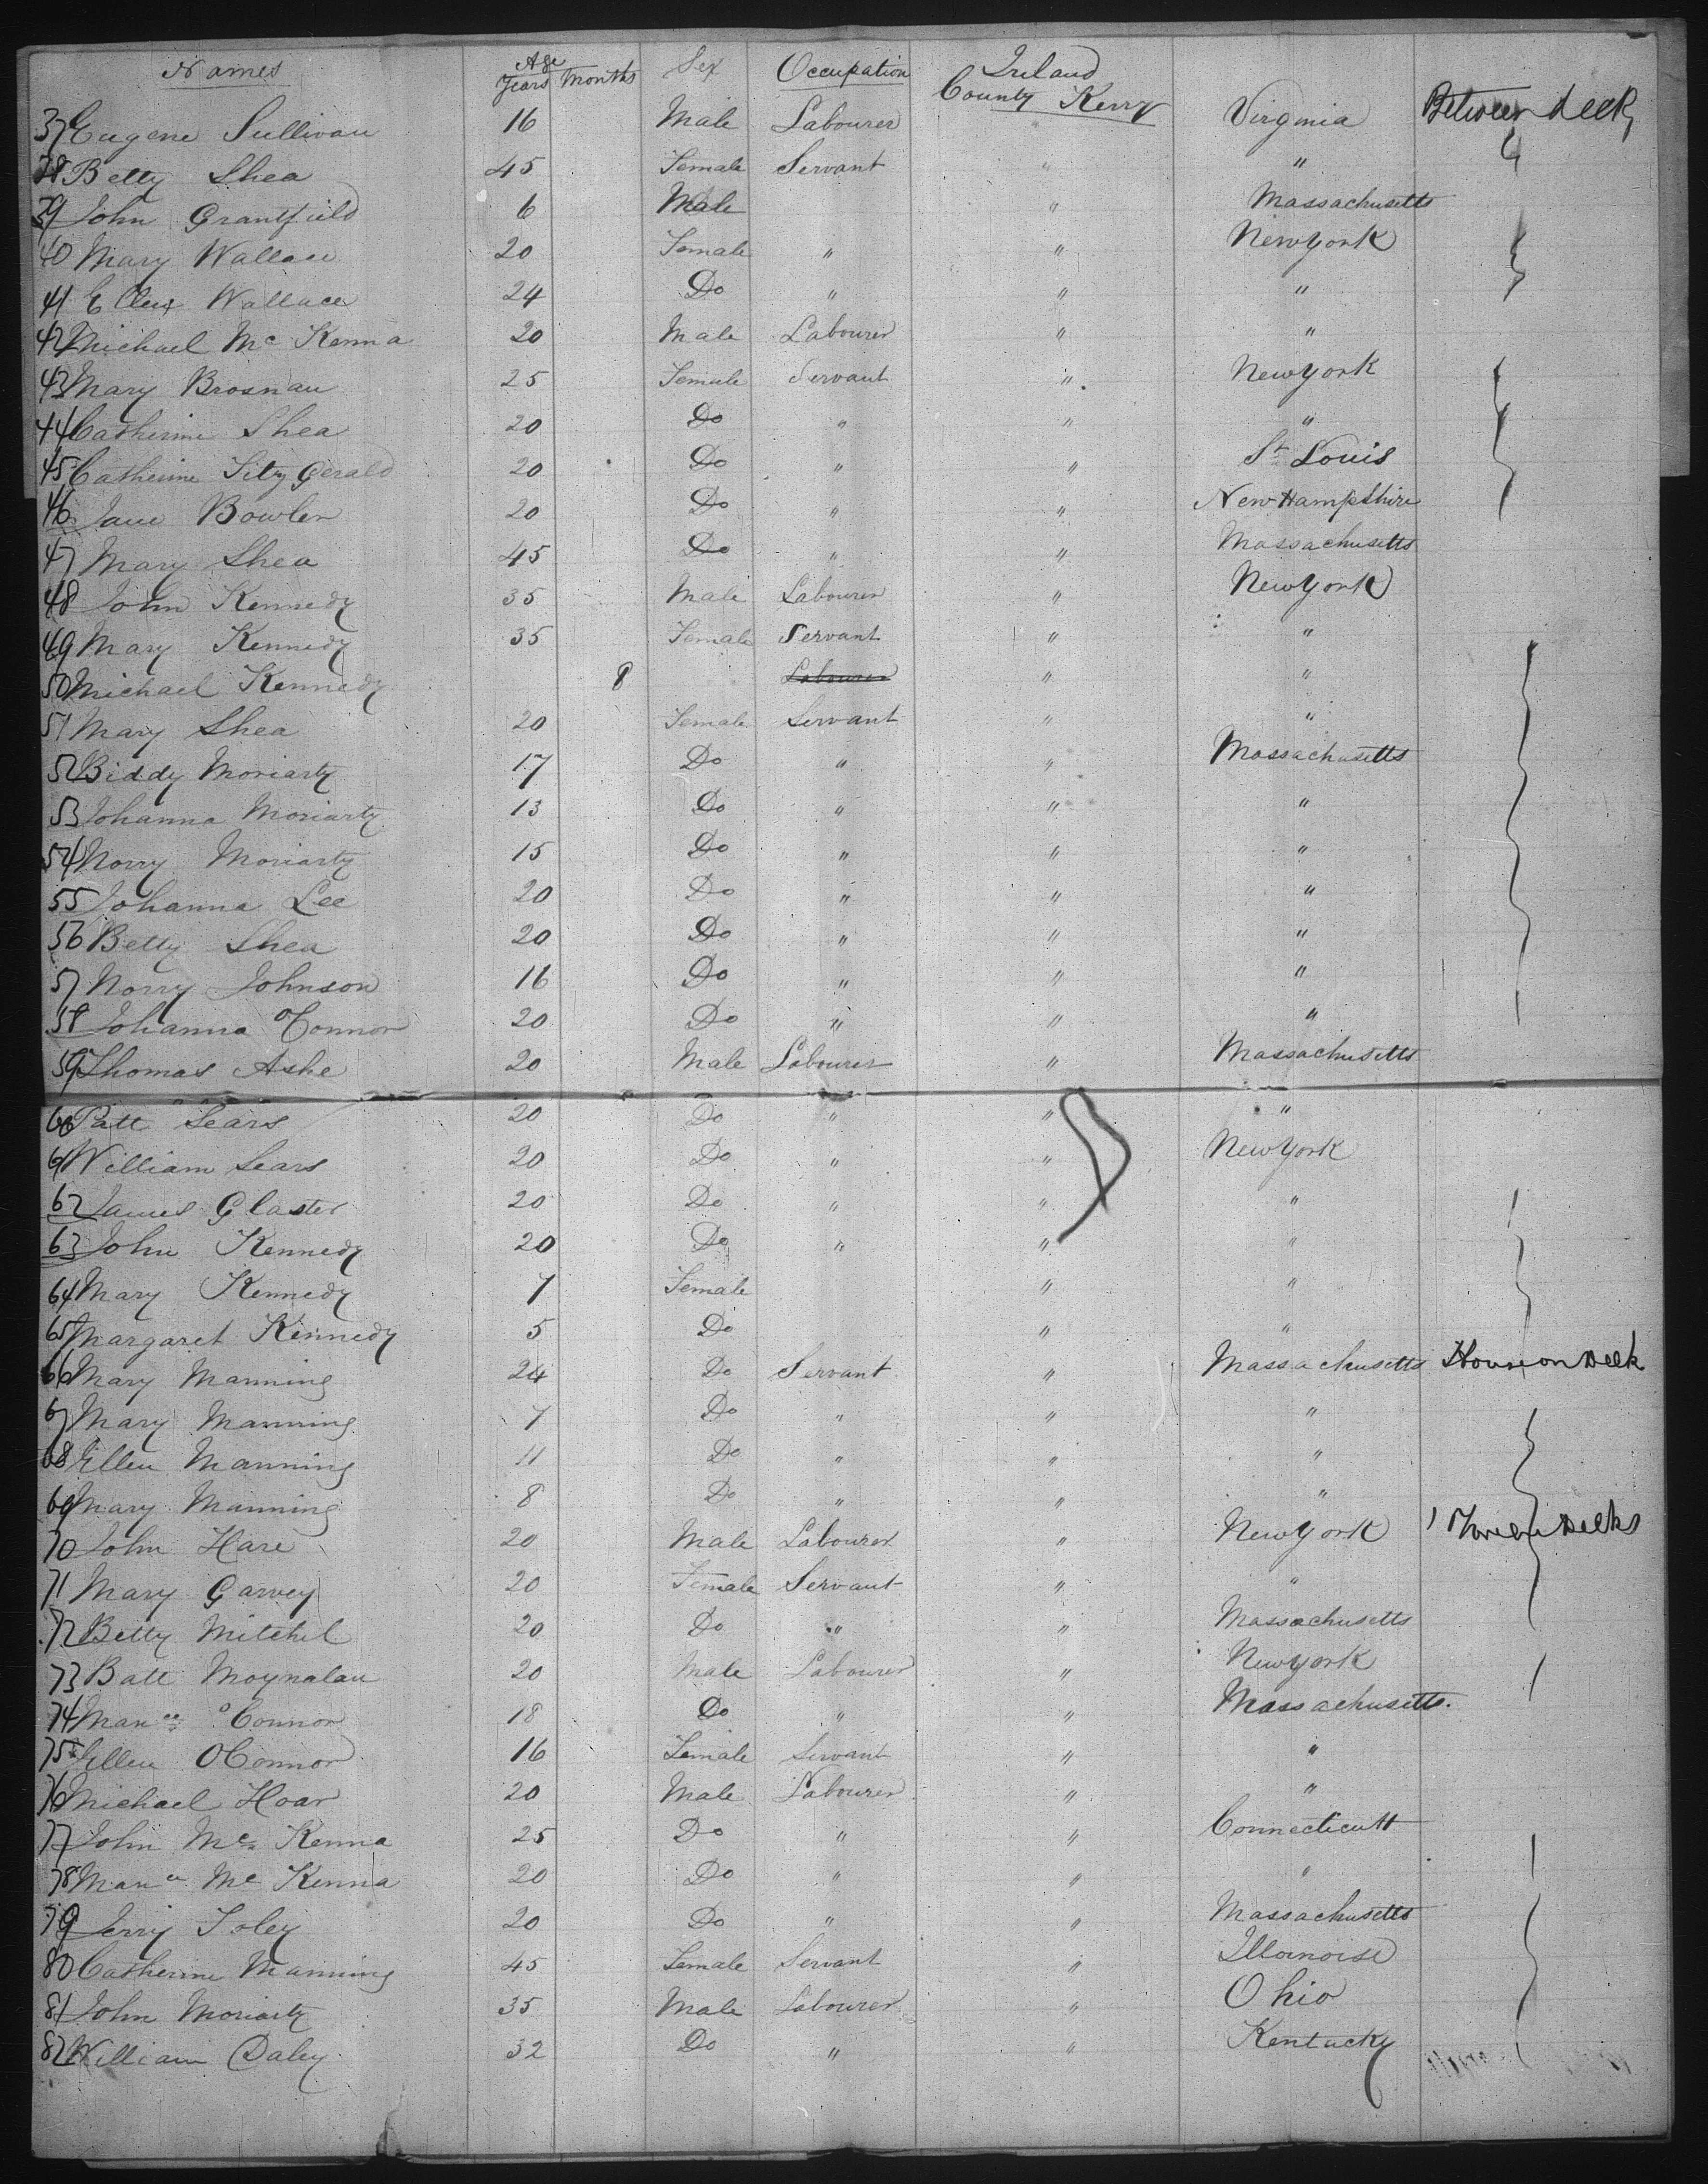 Names Age Years Months Sex Occupation Ireland County Kerry
37 Eugene Sullivan 16 Male Labourer " Virginia Between deck
38 Betty Shea 45 Female Servant " "
39 John Grantfield 6 Male " Massachusetts
40 Mary Wallace 20 Female " " New York
41 Ellen Wallace 24 Do " " "
42 Michael Mc Kenna 20 Male Labourer " "
43 Mary Brosnan 25 Female Servant " New York
44 Catherine Shea 20 Do " " "
45 Catherine Fitz Gerald 20 Do " " St Louis
46 Jane Bowler 20 Do " " New Hampshire
47 Mary Shea 45 Do " " Massachusetts
48 John Kennedy 35 Male Labourer " New York
49 Mary Kennedy 35 Female Servant " "
50 Michael Kennedy 8 Labourer " "
51 Mary Shea 20 Female Servant " "
52 Biddy Moriarty 17 Do " " Massachusetts
53 Johanna Moriarty 13 Do " " "
54 Norry Moriarty 15 Do " " "
55 Johanna Lee 20 Do " " "
56 Betty Shea 20 Do " " "
57 Norry Johnson 16 Do " " "
58 Johanna OConnor 20 Do " " "
59 Thomas Ashe 20 Male Labourer " Massachusetts
60 Patt Sears 20 Do " " "
61 William Sears 20 Do " " New York
62 James Glaster 20 Do " " "
63 John Kennedy 20 Do " " "
64 Mary Kennedy 7 Female " "
65 Margaret Kennedy 5 Do " "
66 Mary Manning 24 Do Servant " Massachusetts House on Deck
67 Mary Manning 7 Do " " "
68 Ellen Manning 11 Do " " "
69 Mary Manning 8 Do " " "
70 John Hare 20 Male Labourer " New York Decks
71 Mary Garvey 20 Female Servant " "
72 Betty Mitchel 20 Do " " Massachusetts
73 Batt Moynahan 20 Male Labourer " New York
74 OConnor 18 Do " " Massachusetts.
75 Ellen OConnor 16 Female Servant " "
76 Michael Hoar 20 Male Labourer " "
77 John Mc Kenna 25 Do " " Connecticutt
78 Mc Kenna 20 Do " " "
79 Jerry Foley 20 Do " " Massachusetts
80 Catherine Manning 45 Female Servant " Illonoise
81 John Moriarty 35 Male Labourer " Ohio
82 William Daley 32 Do " " Kentucky